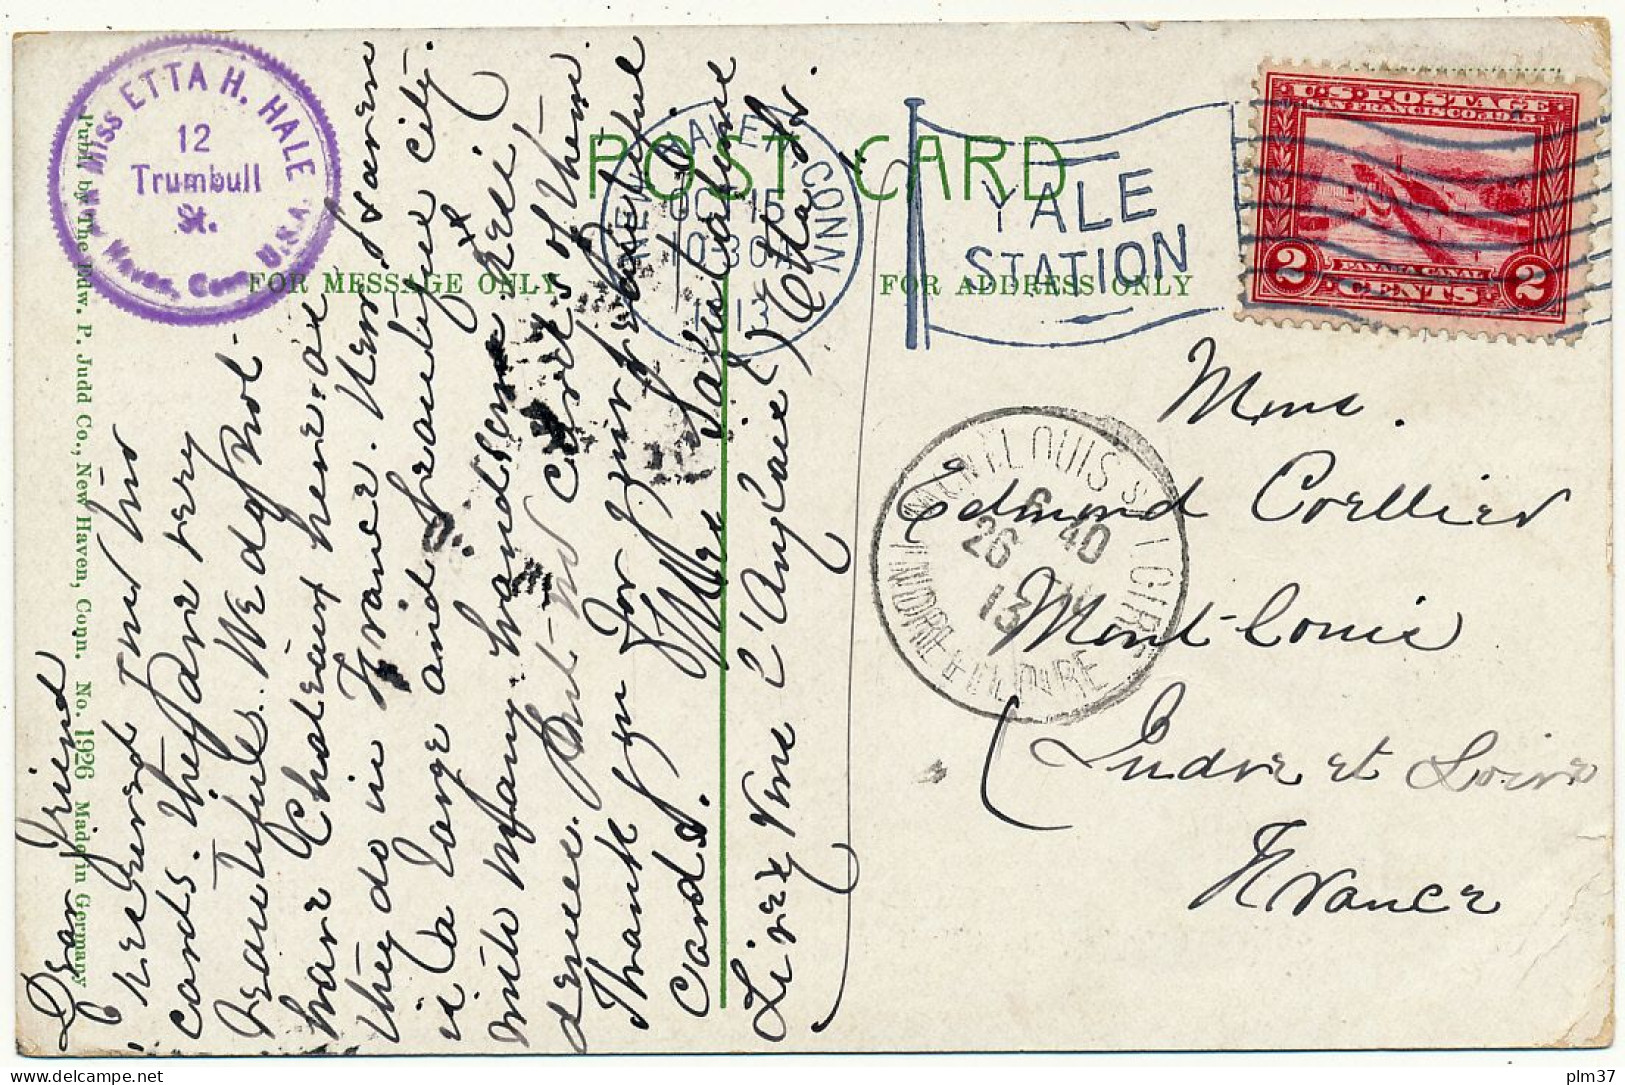 MISS ETTA H. HALE
12
Trumbull
St.
New Haven, Conn. U.S.A.
Publ. by The Edw. P. Judd Co., New Haven, Conn. No. 1926 Made in Germany
POST CARD
FOR MESSAGE ONLY
FOR ADDRESS ONLY
NEW HAVEN CONN
OCT 15
YALE
STATION
U.S. POSTAGE
SAN FRANCISCO 1915
PANAMA CANAL
2 CENTS 2
Dear Friend
I received your two
cards. They are very
beautiful. We do not
have Chateaux here as
they do in France. New Haven
is a large and beautiful city.
with many handsome resi-
dences. But no cards of them
Thank you for your beautiful
Cards.
Mes Salutations
Etta H.
Lisez vous l'Anglais?
Mme.
Edmond Corllier
Mont-Louis
Indre et Loire
France
MONTLOUIS S/ LOIRE
6 40
26
13
INDRE ET LOIRE
plm37